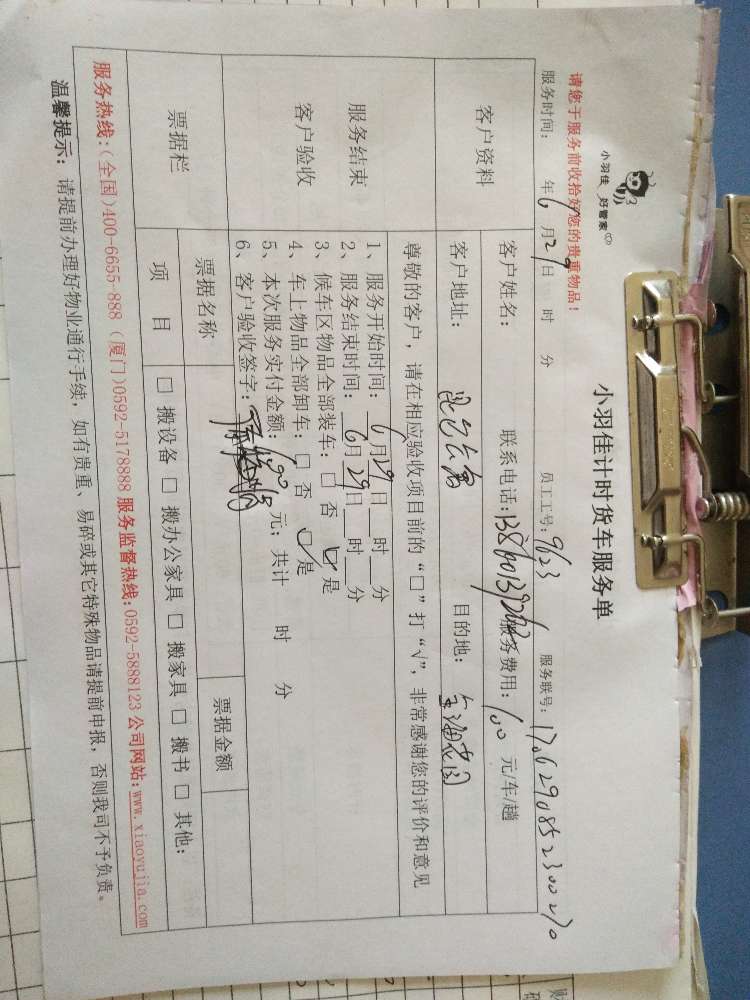 小羽佳 好管家
小羽佳计时货车服务单
请您于服务前收拾好您的贵重物品！
服务时间： 年6月29日 时 分 员工工号：9623 服务联号：
客户资料
客户姓名： 联系电话： 服务费用：100 元/车/趟
客户地址： 目的地：
尊敬的客户，请在相应验收项目前的“□”打“√”，非常感谢您的评价和意见
服务结束
客户验收
1、服务开始时间：6月29日 时 分
2、服务结束时间：6月29日 时 分
3、候车区物品全部装车：□ 否 □ 是
4、车上物品全部卸车：□ 否 □ 是
5、本次服务实付金额：100 元；共计 时 分
6、客户验收签字：
票据栏
票据名称 票据金额
项 目 □ 搬设备 □ 搬办公家具 □ 搬家具 □ 搬书 □ 其他：
服务热线：(全国)400-6655-888 (厦门)0592-5178888 服务监督热线：0592-5888123 公司网站：www.xiaoyujia.com
温馨提示：请提前办理好物业通行手续，如有贵重、易碎或其它特殊物品请提前申报，否则我司不予负责。